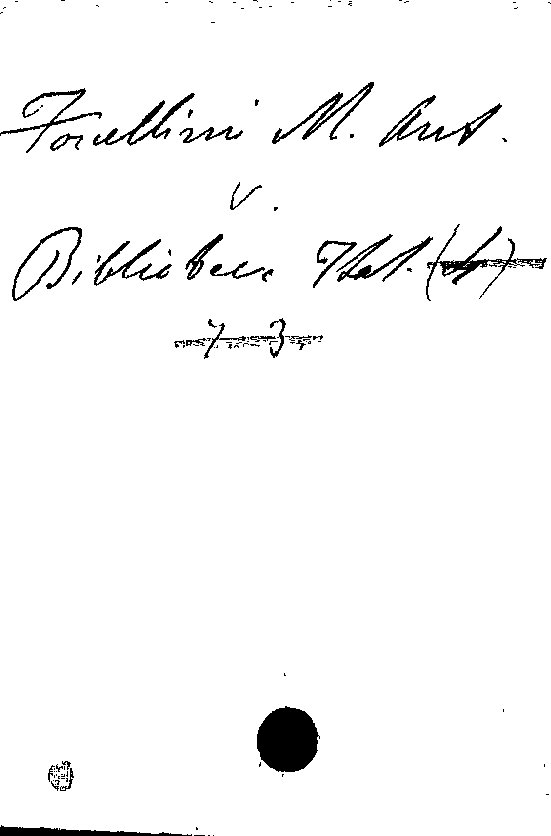 Forcellini M. Ant.
v.
Biblioteca Ital. (4)
7 3